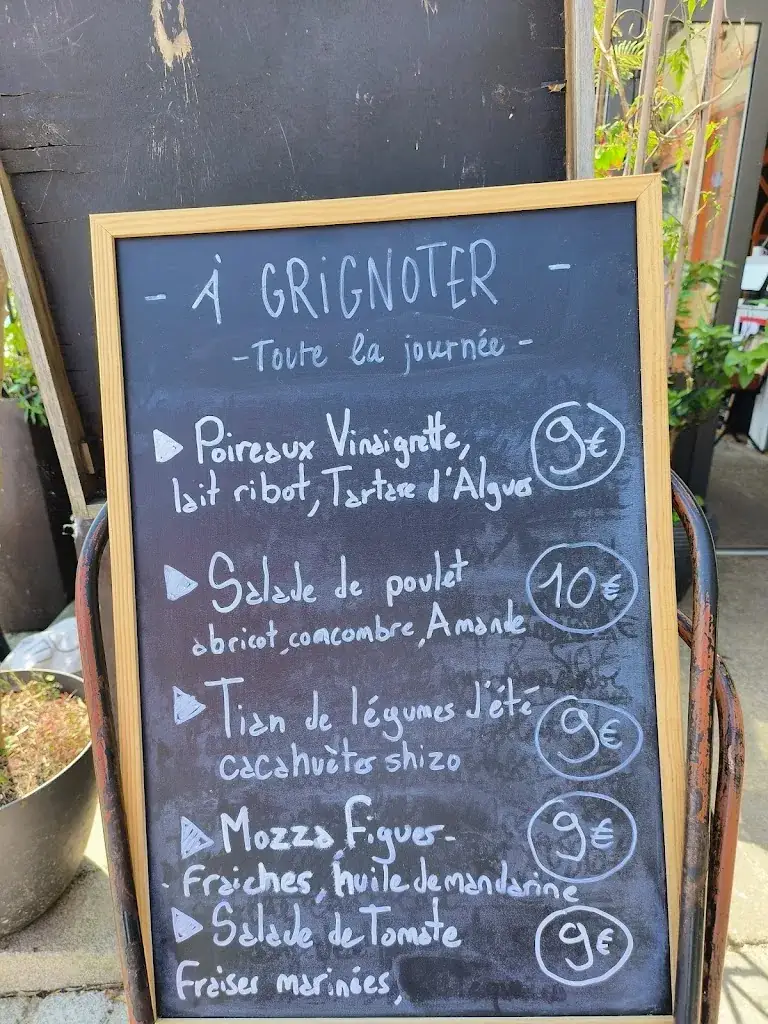 - À GRIGNOTER -
- Toute la journée -
Poireaux Vinaigrette,
lait ribot, Tartare d'Algues
9€
Salade de poulet
abricot, concombre, Amande
10€
Tian de légumes d'été
cacahuètes shizo
9€
Mozza, Figues
Fraiches, huile de mandarine
9€
Salade de Tomate
Fraises marinées,
9€